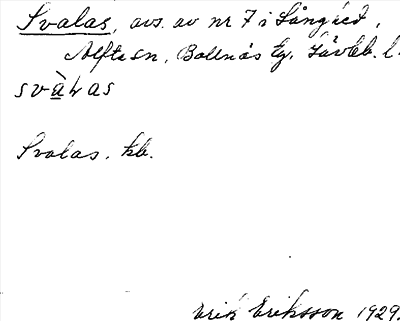 Svalas, avs. av nr 7 i Långhed,
Alfta sn, Bollnäs tg, Gävleb. l.
svàɫas
Svalas. kb.
Erik Eriksson 1929.